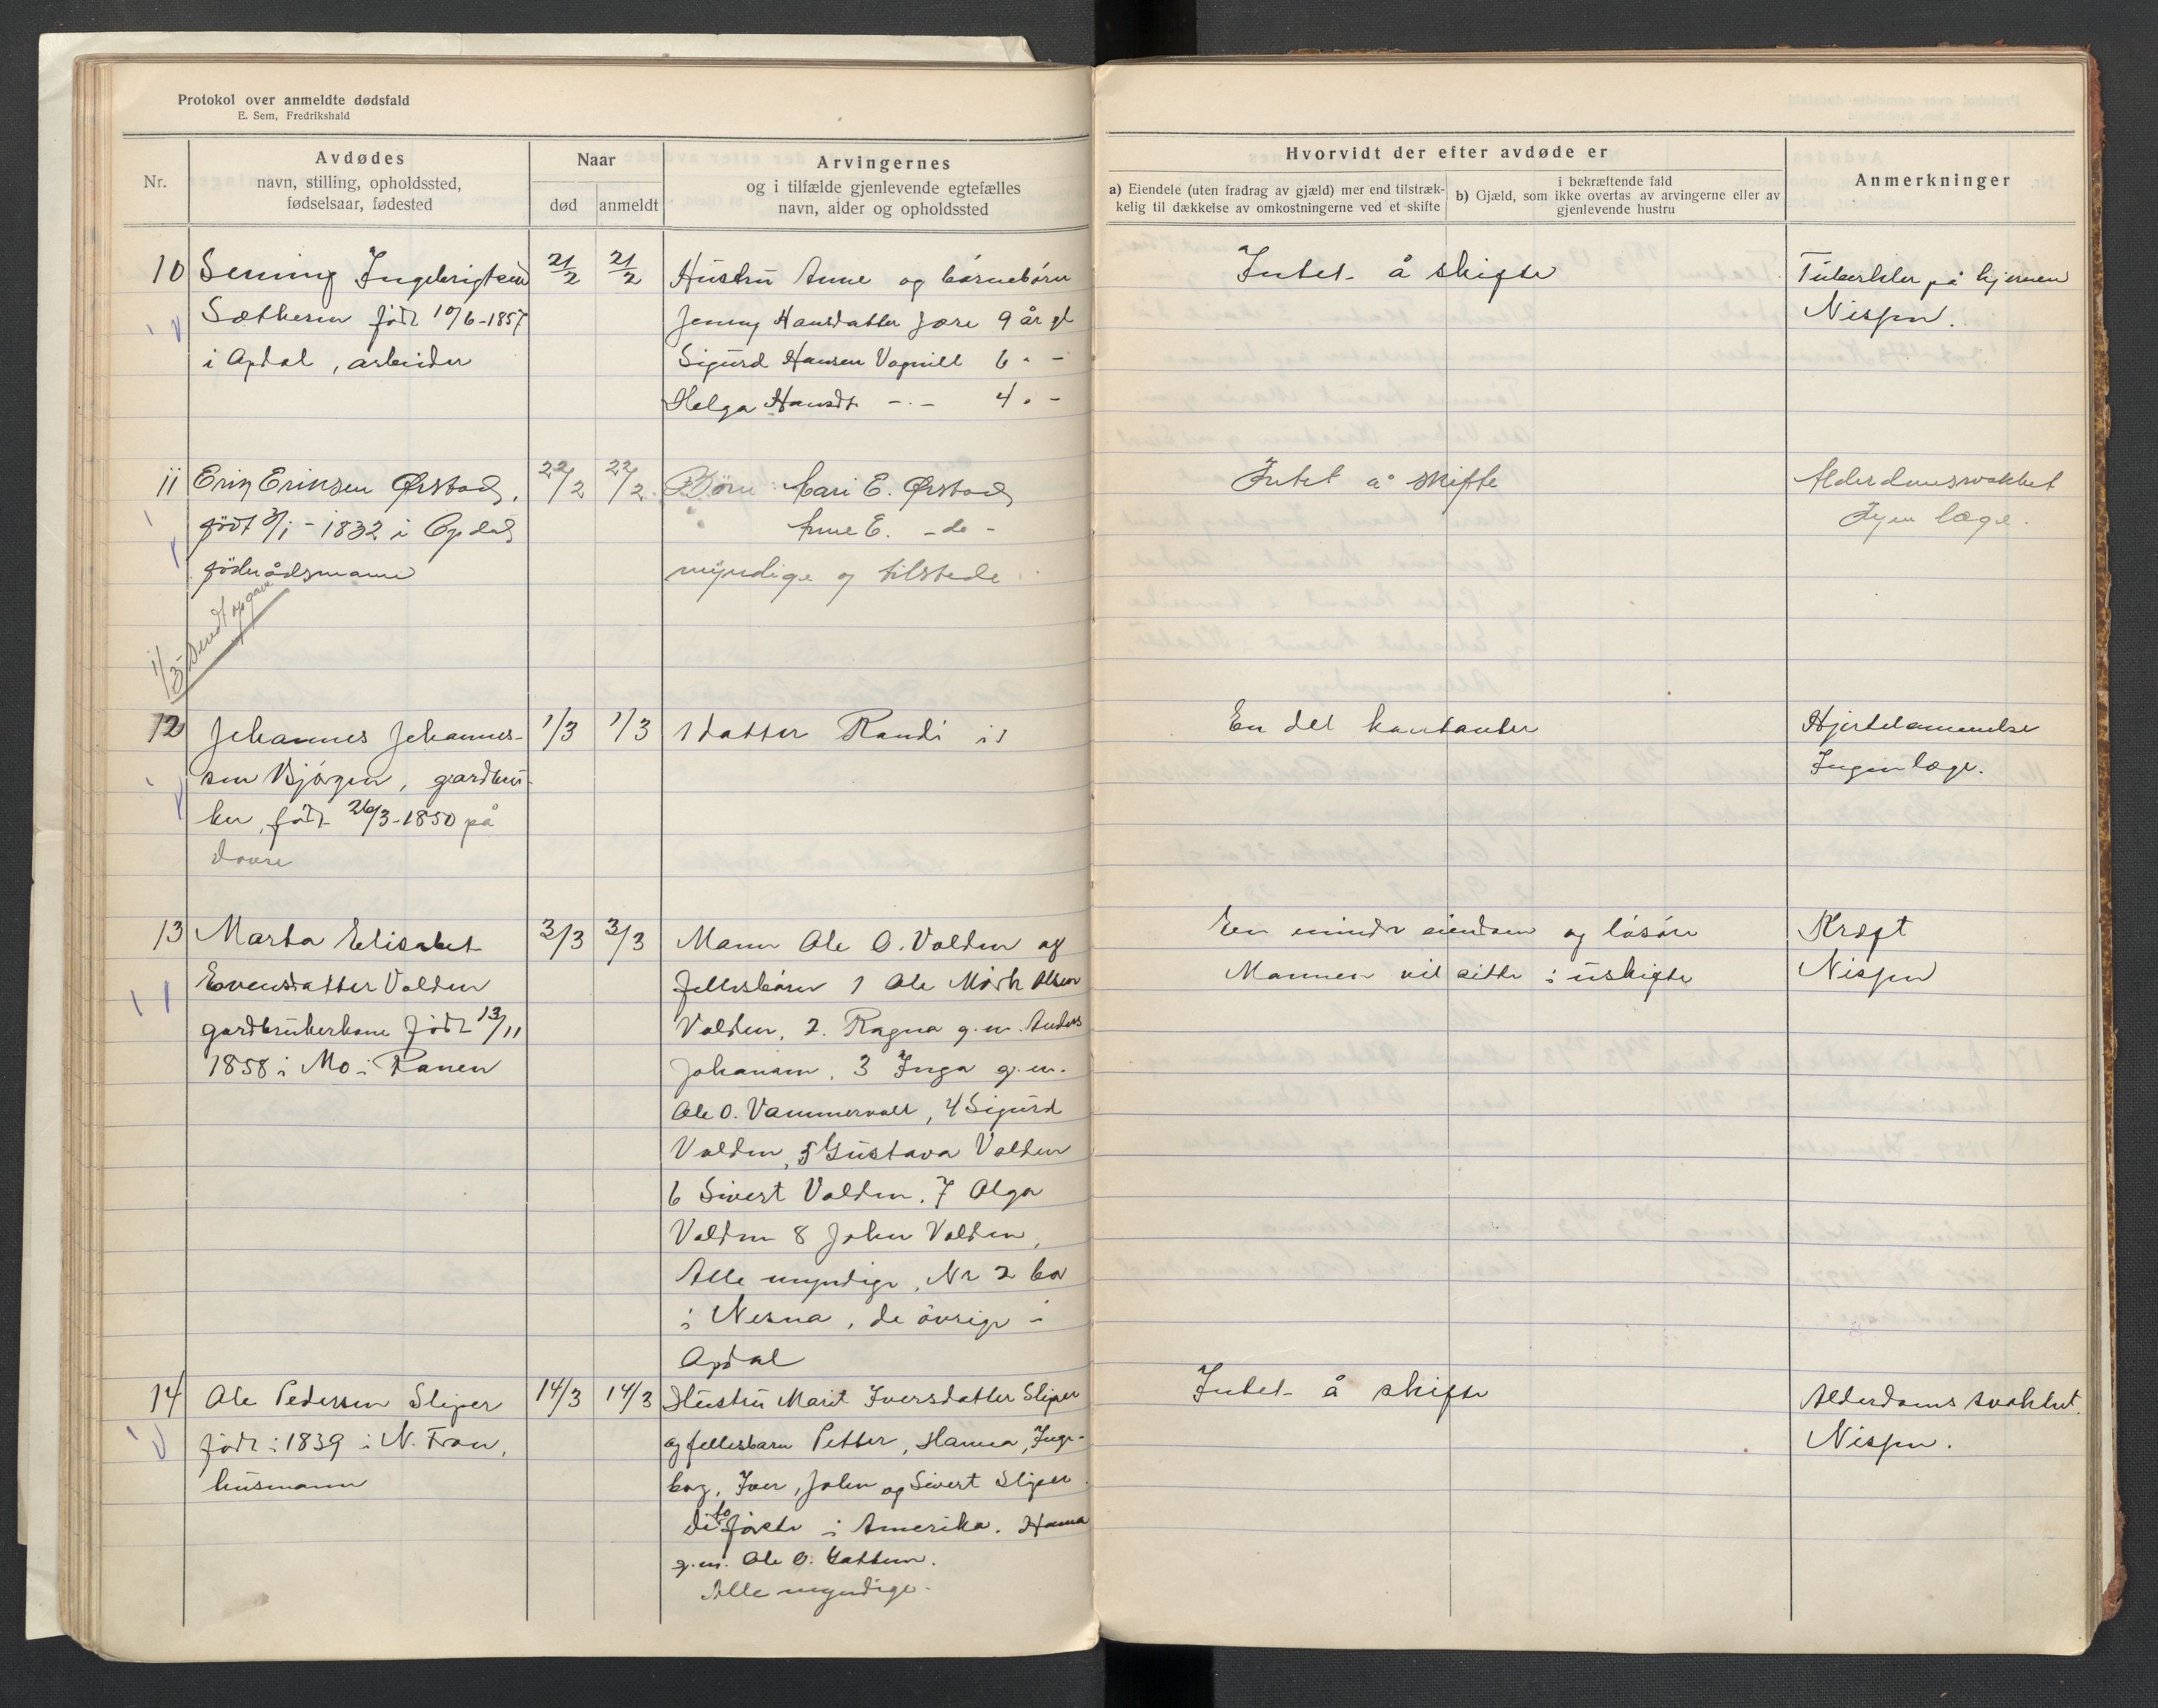 Protokol over anmeldte dødsfald
E. Sem, Fredrikshald
Nr.
Avdødes
navn, stilling, opholdssted,
fødselsaar, fødested
Naar
død
anmeldt
Arvingernes
og i tilfælde gjenlevende egtefælles
navn, alder og opholdssted
Hvorvidt der efter avdøde er
a) Eiendele (uten fradrag av gjæld) mer end tilstræk-
kelig til dækkelse av omkostningerne ved et skifte
i bekræftende fald
b) Gjæld, som ikke overtas av arvingerne eller av
gjenlevende hustru
Anmerkninger
10
Ingebrigtsen
født 10/6-1857
i Opdal, arbeider
21/2
21/2
Hustru Anne og børnebørn
Jenny Hansdatter 9 år gl
Sigurd Hansen Vognill 6 " -
Helga Hansdt. - " - 4 " -
Intet å skifte
Tuberkler på hjernen
Nisjen.
11
Erik Eriksen Ørstad,
født 3/1-1832 i Opdal
föderådsmann
22/2
22/2
Børn: Mari E. Ørstad
Anne E. -do-
myndige og tilstede
Intet å skifte
Alderdomssvakhet
Ingen læge.
1/3 Sendt opgave
12
Johannes Johannes-
sen Bjørgen, gardbru-
ker, født 26/3-1850 på
Dovre
1/3
1/3
1 datter Randi
En del kontanter
Hjertelammelse
Ingen læge.
13
Marta Elisabet
Evensdatter Volden
gardbrukerkone født 13/11
1858 i Mo i Ranen
3/3
3/3
Mann Ole O. Volden og
fellesbørn 1 Ole Mørk Olsen
Volden, 2. Ragna g.m. Anders
Johansen, 3 Inga g.m.
Ole O. Vammervoll, 4 Sigurd
Volden, 5 Gustava Volden
6 Sivert Volden. 7 Olga
Volden 8 John Volden,
Alle myndige, Nr 2 bor
i Nesna, de øvrige i
Opdal
En mindre eiendom og løsøre
Mannen vil sitte i uskifte
Kræft
Nisjen
14
Ole Pedersen Sliper
født i 1839 i N. Fron,
husmann
14/3
14/3
Hustru Marit Iversdatter Sliper
og fellesbarn Petter, Hanna, Inge-
borg, Iver, John og Sivert Sliper.
De to første i Amerika. Hanna
g.m. Ole O.
Alle myndige.
Intet å skifte
Alderdoms svakhet.
Nisjen.